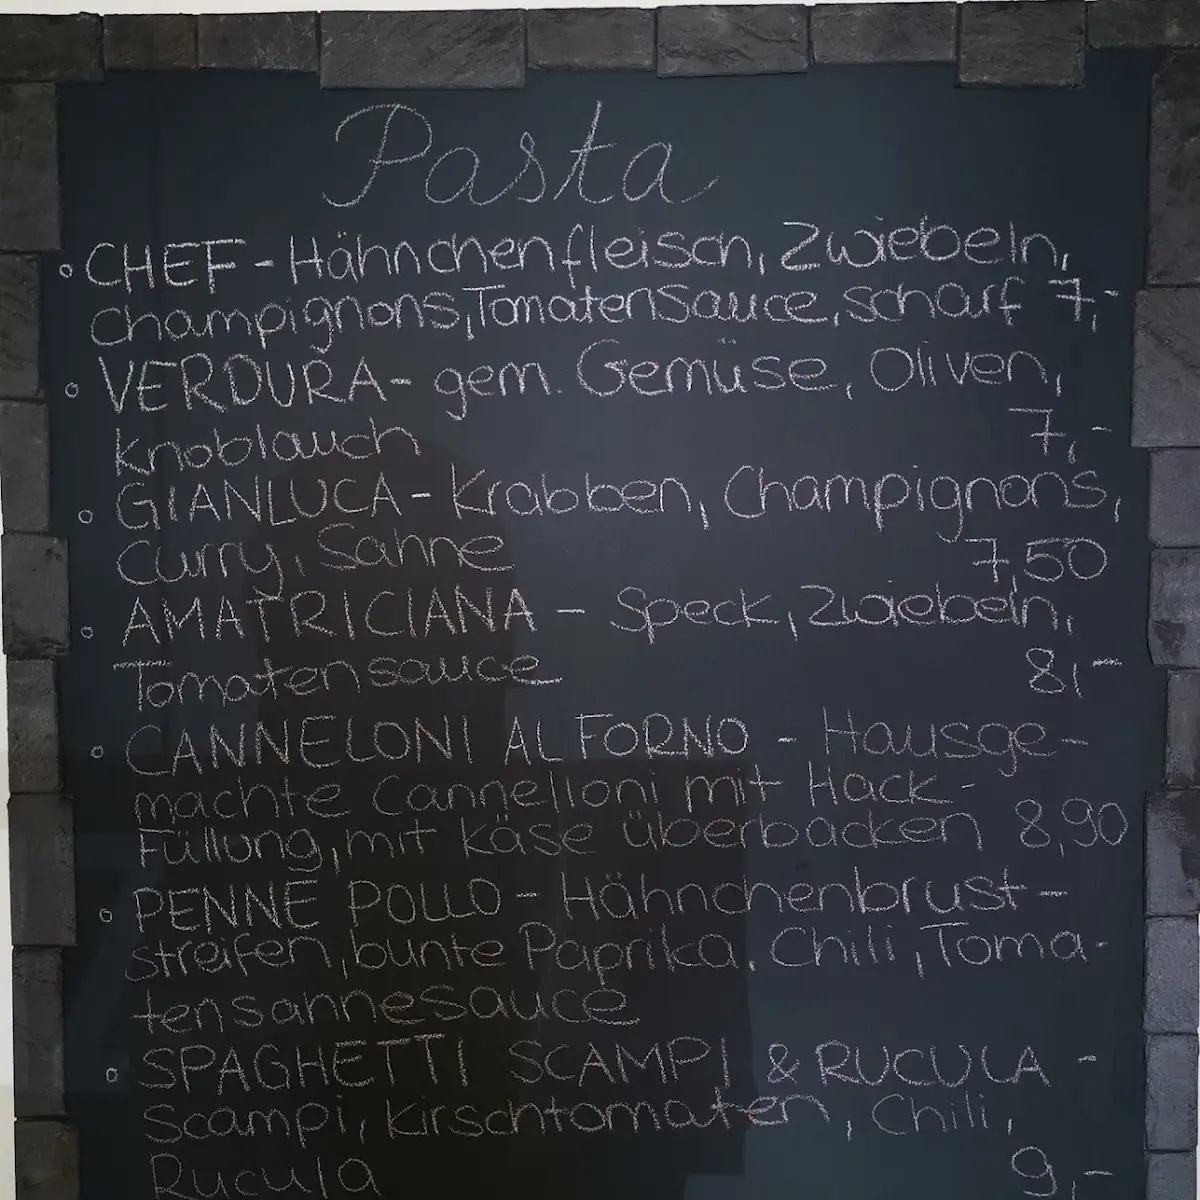 Pasta
• CHEF - Hähnchenfleisch, Zwiebeln,
Champignons, Tomatensauce, scharf 7,-
• VERDURA - gem. Gemüse, Oliven,
Knoblauch 7,-
• GIANLUCA - Krabben, Champignons,
Curry, Sahne 7,50
• AMATRICIANA - Speck, Zwiebeln,
Tomatensauce 8,-
• CANNELONI AL FORNO - Hausge-
machte Cannelloni mit Hack-
Füllung, mit Käse überbacken 8,90
• PENNE POLLO - Hähnchenbrust-
streifen, bunte Paprika, Chili, Toma-
tensahnesauce
• SPAGHETTI SCAMPI & RUCULA -
Scampi, Kirschtomaten, Chili,
Rucula 9,-